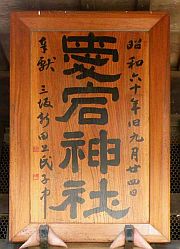 昭和六十年旧九月廿四日
愛宕神社
奉献 三坂新田上氏子中